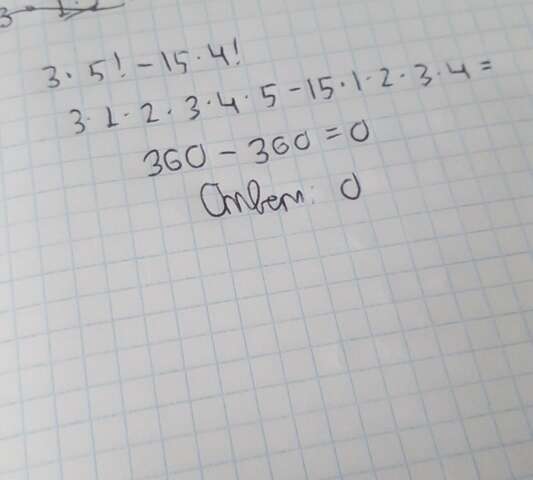 3 · 5! - 15 · 4!
3 · 1 · 2 · 3 · 4 · 5 - 15 · 1 · 2 · 3 · 4 =
360 - 360 = 0
Ответ: 0